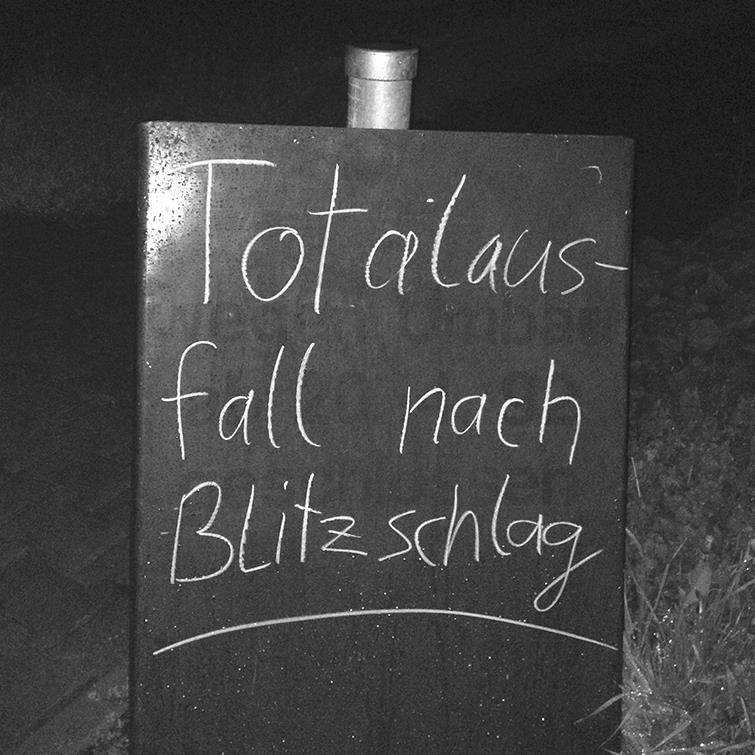 Totalaus-
fall nach
Blitzschlag